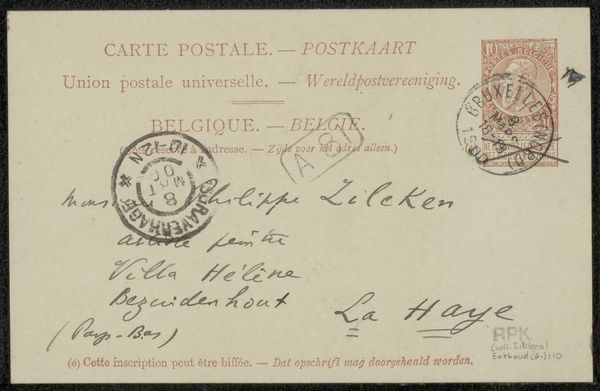 CARTE POSTALE. — POSTKAART
Union postale universelle. — Wereldpostvereeniging.
BELGIQUE. — BELGIE.
à l'adresse. — Zijde voor het adres alleen.)
10
BRUXELLES (NORD)
8
MARS
1900
A 8
'S GRAVENHAGE
10-12 N
8
MRT
00
Philippe Zilcken
artiste peintre
Villa Hélène
Bezuidenhout
La Haye
(Pays-Bas)
RPK
(coll. Zilcken)
Eekhoud (G.):10
(6) Cette inscription peut être biffée. — Dat opschrift mag doorgehaald worden.